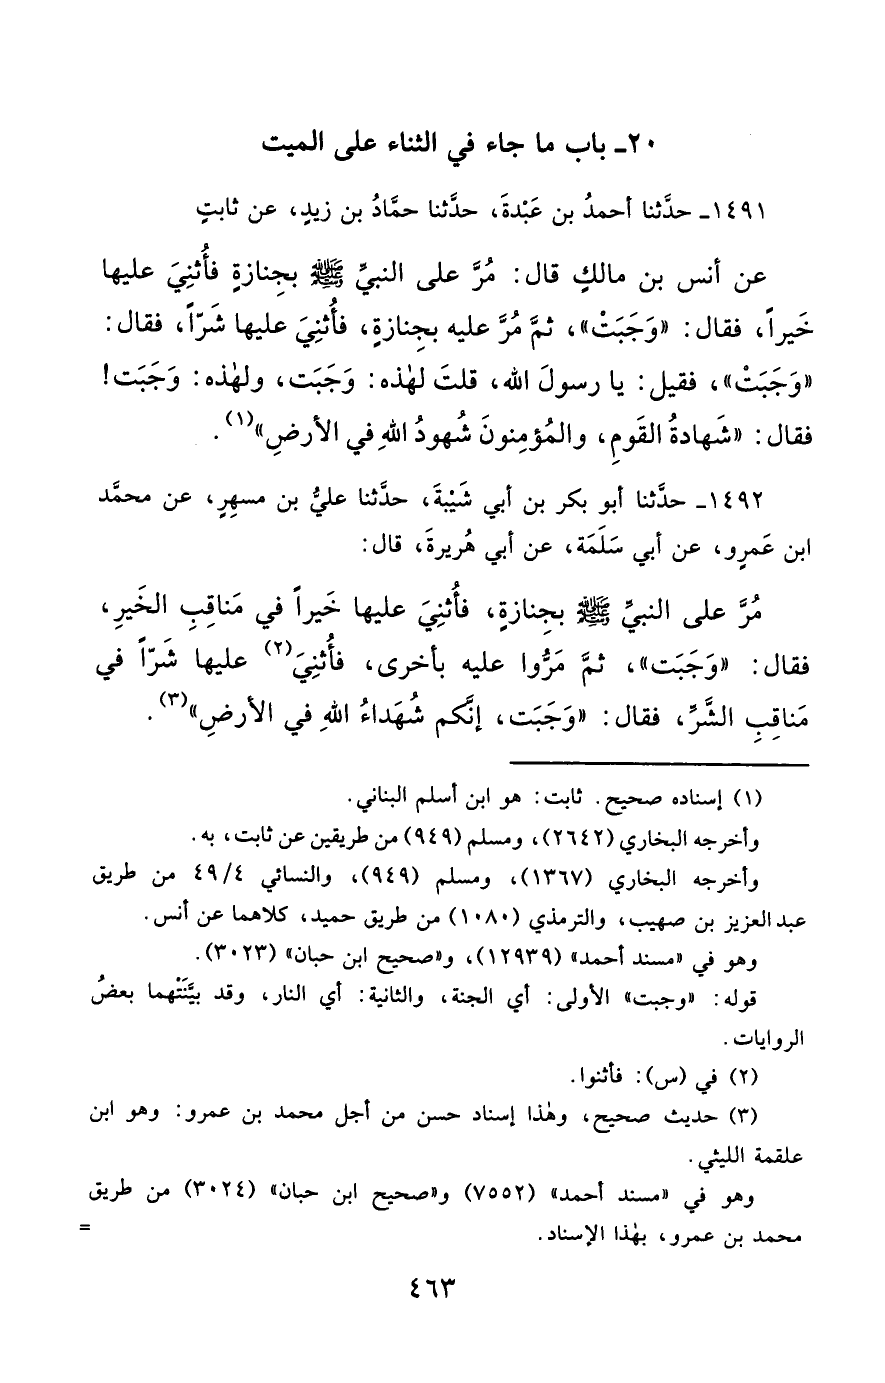 ٢٠ـ باب ما جاء في الثناء على الميت
١٤٩١ـ حدَّثنا أحمدُ بن عَبْدةَ، حدَّثنا حمَّادُ بن زيدٍ، عن ثابتٍ
عن أنس بن مالكٍ قال: مُرَّ على النبيِّ ﷺ بجِنازةٍ فأُثنِيَ عليها
خَيراً، فقال: «وَجَبَتْ»، ثمَّ مُرَّ عليه بجِنازةٍ، فأُثنِيَ عليها شَرّاً، فقال:
«وَجَبَتْ»، فقيل: يا رسولَ الله، قلتَ لهٰذه: وَجَبَت، ولهٰذه: وَجَبَت!
فقال: «شَهادةُ القَومِ، والمُؤمِنونَ شُهودُ اللهِ في الأرضِ»(١).
١٤٩٢ـ حدَّثنا أبو بكر بن أبي شَيْبةَ، حدَّثنا عليُّ بن مسهِرٍ، عن محمَّد
ابن عَمرٍو، عن أبي سَلَمَة، عن أبي هُريرةَ، قال:
مُرَّ على النبيِّ ﷺ بجِنازةٍ، فأُثنِيَ عليها خَيراً في مَناقِبِ الخَيرِ،
فقال: «وَجَبَت»، ثمَّ مَرُّوا عليه بأخرى، فأُثنِيَ(٢) عليها شَرّاً في
مَناقِبِ الشَّرِّ، فقال: «وَجَبَت، إنَّكم شُهَداءُ اللهِ في الأرضِ»(٣).
(١) إسناده صحيح. ثابت: هو ابن أسلم البناني.
وأخرجه البخاري (٢٦٤٢)، ومسلم (٩٤٩) من طريقين عن ثابت، به.
وأخرجه البخاري (١٣٦٧)، ومسلم (٩٤٩)، والنسائي ٤/ ٤٩ من طريق
عبد العزيز بن صهيب، والترمذي (١٠٨٠) من طريق حميد، كلاهما عن أنس.
وهو في «مسند أحمد» (١٢٩٣٩)، و«صحيح ابن حبان» (٣٠٢٣).
قوله: «وجبت» الأولى: أي الجنة، والثانية: أي النار، وقد بيَّنَتْهما بعضُ
الروايات.
(٢) في (س): فأثنوا.
(٣) حديث صحيح، وهٰذا إسناد حسن من أجل محمد بن عمرو: وهو ابن
علقمة الليثي.
وهو في «مسند أحمد» (٧٥٥٢) و«صحيح ابن حبان» (٣٠٢٤) من طريق
محمد بن عمرو، بهٰذا الإسناد. =
٤٦٣